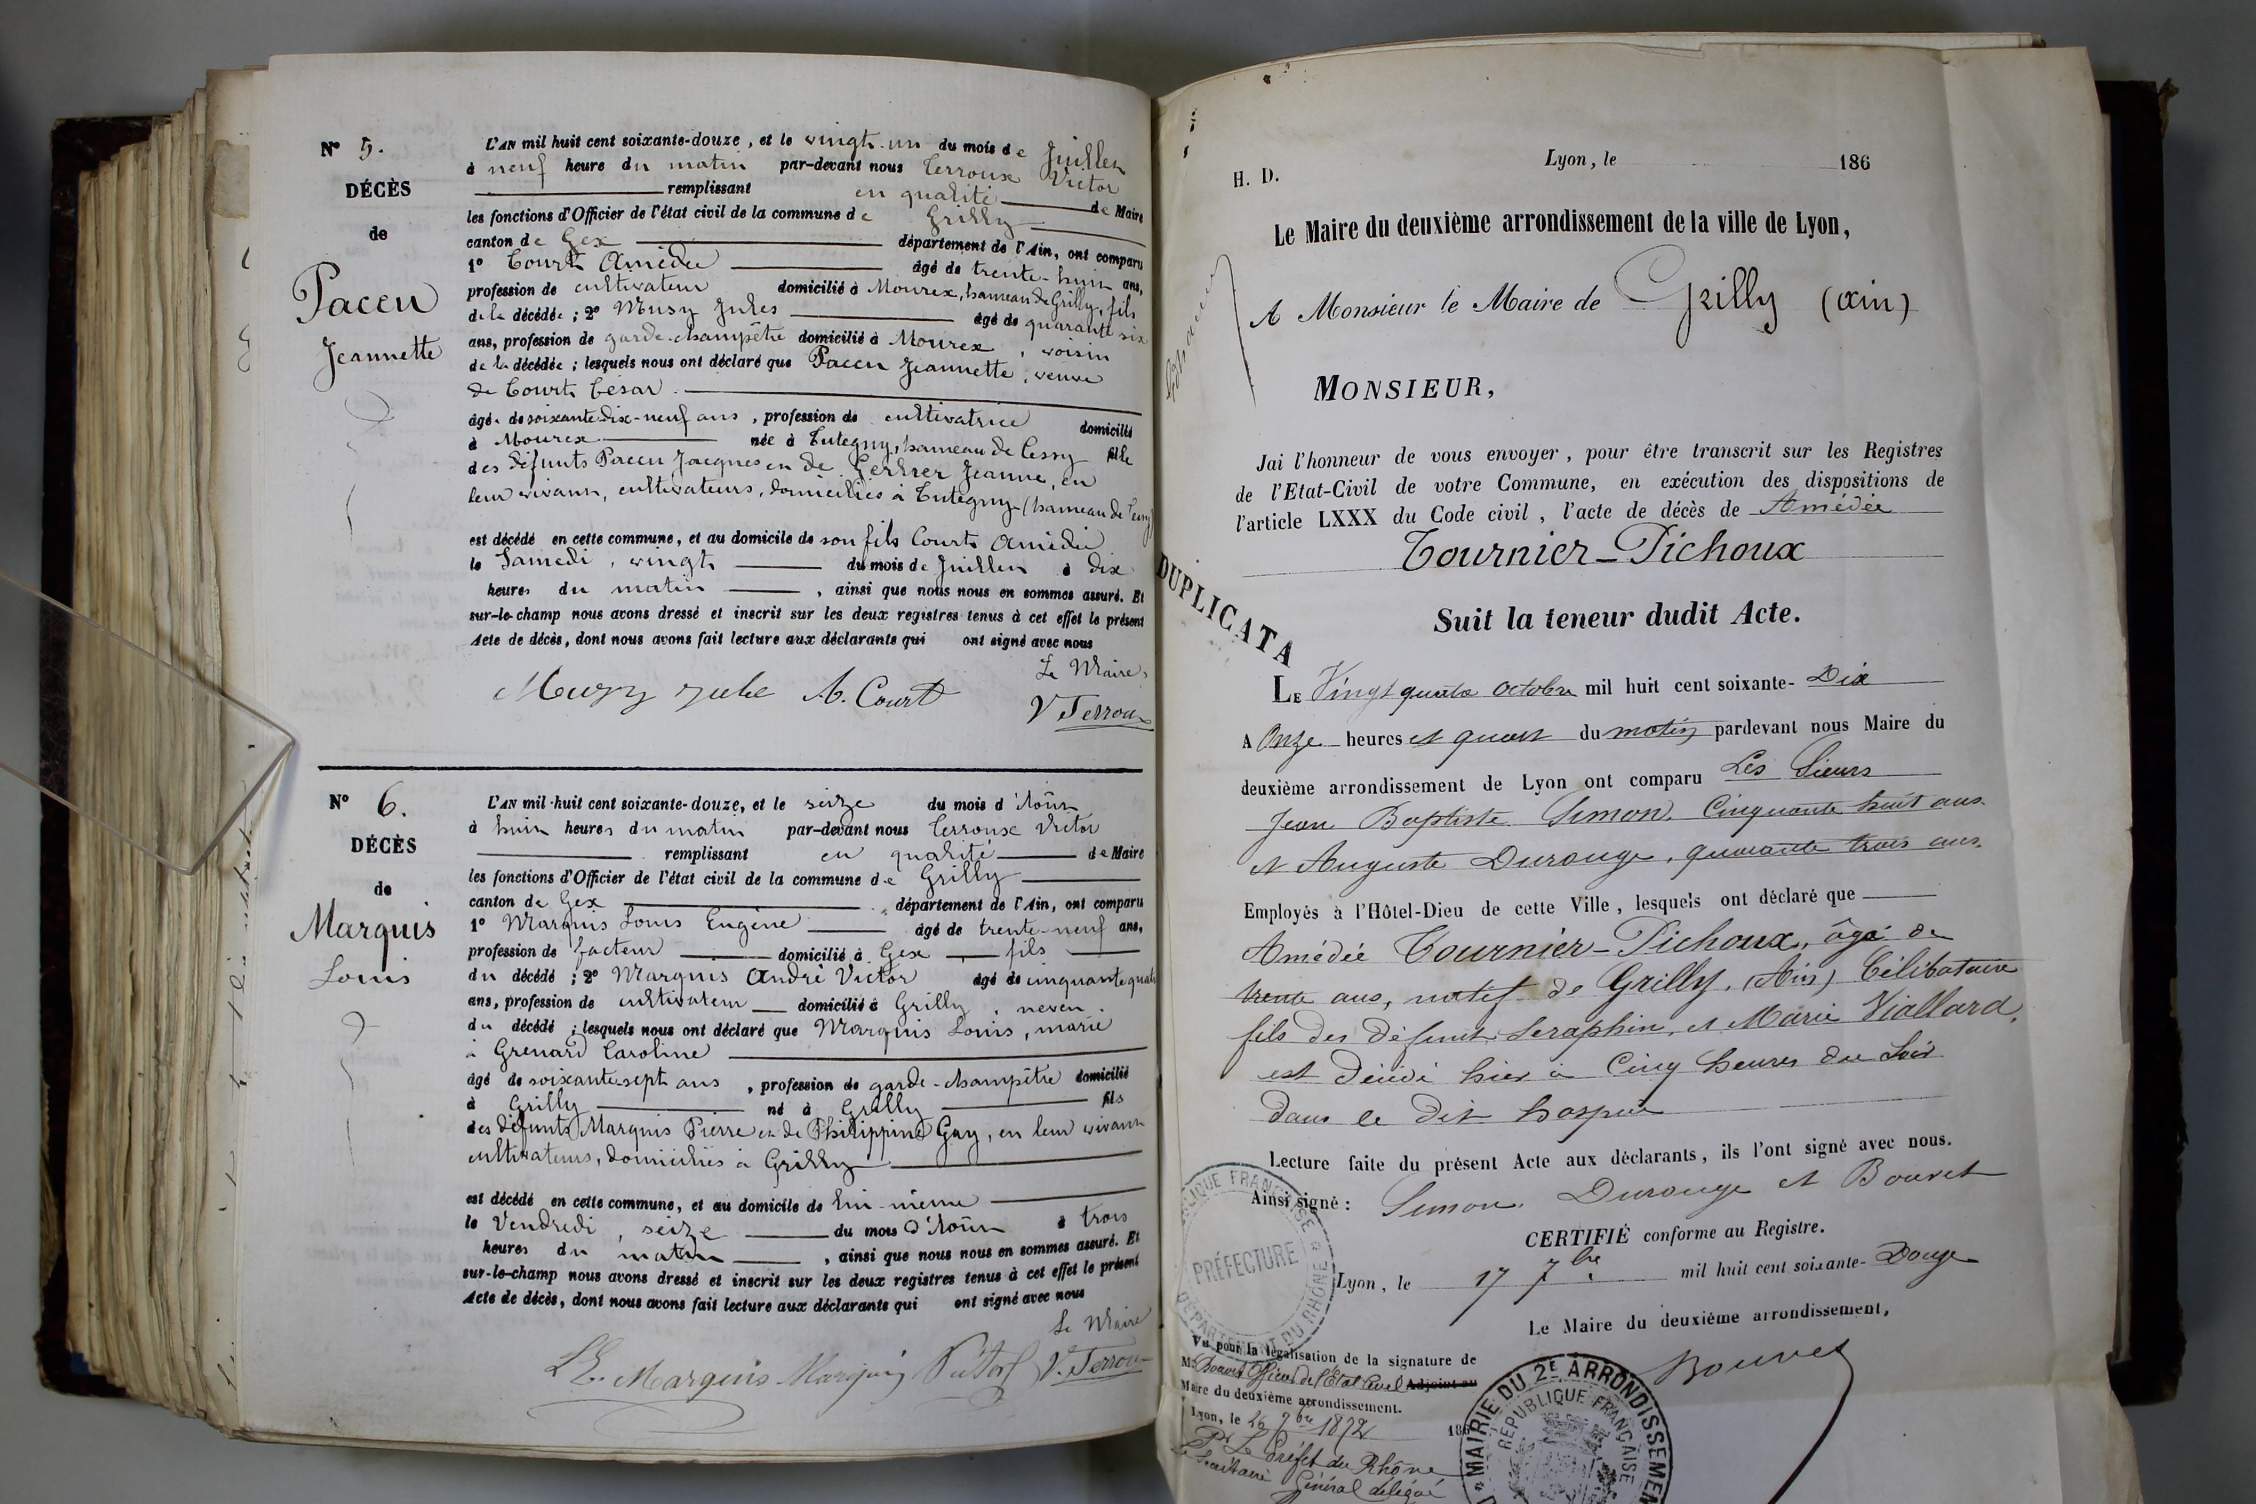 N° 5.
DÉCÈS
de
Pacen
Jeannette
L'AN mil huit cent soixante-douze, et le vingt-un du mois de Juillen
à neuf heure du matin par-devant nous Terroux Victor
remplissant en qualité de Maire
les fonctions d'Officier de l'état civil de la commune de Grilly
canton de Gex département de l'Ain, ont comparu
1° Court Amédée âgé de trente-huin ans,
profession de cultivateur domicilié à Mourex, hameau de Grilly, fils
de la décédée ; 2° Musy Jules âgé de quarante six
ans, profession de garde-champêtre domicilié à Mourex, voisin
de la décédée ; lesquels nous ont déclaré que Pacen Jeannette, veuve
de Court César
âgée de soixante-dix-neuf ans, profession de cultivatrice domicilié
à Mourex née à Tutegny, hameau de Cessy fille
des défunts Pacen Jacques en de Gerrer Jeanne, en
leur vivann, cultivateurs, domiciliés à Tutegny (hameau de Cessy)
est décédé en cette commune, et au domicile de son fils Court Amédée
le Samedi, vingt du mois de Juillen à dix
heures du matin, ainsi que nous nous en sommes assuré. Et
sur-le-champ nous avons dressé et inscrit sur les deux registres tenus à cet effet le présent
Acte de décès, dont nous avons fait lecture aux déclarants qui ont signé avec nous
Le Maire,
Musy Jule A. Court V Terroux
N° 6.
DÉCÈS
de
Marquis
Louis
L'AN mil huit cent soixante-douze, et le seize du mois d'Aoûn
à huin heures du matin par-devant nous Terroux Victor
remplissant en qualité de Maire
les fonctions d'Officier de l'état civil de la commune de Grilly
canton de Gex département de l'Ain, ont comparu
1° Marquis Louis Eugène âgé de trente-neuf ans,
profession de facteur domicilié à Gex fils
du décédé ; 2° Marquis André Victor âgé de cinquante quatre
ans, profession de cultivateur domicilié à Grilly, neveu
du décédé ; lesquels nous ont déclaré que Marquis Louis, marié
à Grenard Caroline
âgé de soixante-sept ans, profession de garde-champêtre domicilié
à Grilly né à Grilly fils
des défunts Marquis Pierre en de Philippine Gay, en leur vivann
cultivateurs, domiciliés à Grilly
est décédé en cette commune, et au domicile de lui-même
le Vendredi, seize du mois d'Aoûn à trois
heures du matin, ainsi que nous nous en sommes assuré. Et
sur-le-champ nous avons dressé et inscrit sur les deux registres tenus à cet effet le présent
Acte de décès, dont nous avons fait lecture aux déclarants qui ont signé avec nous
Le Maire
L.E. Marquis Marquis Victor V. Terroux
H. D.
Lyon, le 186
Le Maire du deuxième arrondissement de la ville de Lyon,
A Monsieur le Maire de Grilly (ain)
MONSIEUR,
Jai l'honneur de vous envoyer, pour être transcrit sur les Registres
de l'Etat-Civil de votre Commune, en exécution des dispositions de
l'article LXXX du Code civil, l'acte de décès de Amédée
Tournier-Pichoux
DUPLICATA
Suit la teneur dudit Acte.
LE Vingt quatre octobre mil huit cent soixante- Dix
A Onze heures et quart du matin pardevant nous Maire du
deuxième arrondissement de Lyon ont comparu Les Sieurs
Jean Baptiste Simon, Cinquante huit ans
et Auguste Durouge, quarante trois ans.
Employés à l'Hôtel-Dieu de cette Ville, lesquels ont déclaré que
Amédée Tournier-Pichoux, âgé de
trente ans, natif de Grilly, (Ain) Célibataire
fils des défunt Seraphin, et Marie Viallard,
est décédé hier à Cinq heures du Soir
dans le dit hospice
Lecture faite du présent Acte aux déclarants, ils l'ont signé avec nous.
Ainsi signé : Simon, Durouge et Bouvet
CERTIFIÉ conforme au Registre.
Lyon, le 17 7bre mil huit cent soixante- Douze
Le Maire du deuxième arrondissement,
Bouvet
RÉPUBLIQUE FRANÇAISE
PRÉFECTURE
DÉPARTEMENT DU RHÔNE
Vu pour la légalisation de la signature de
M. Bouvet Officier de l'État Civil Adjoint au
Maire du deuxième arrondissement.
Lyon, le 26 7bre 1872 186
Pr Le Préfet du Rhône
Le Secrétaire Général délégué
MAIRIE DU 2E ARRONDISSEMENT
RÉPUBLIQUE FRANÇAISE